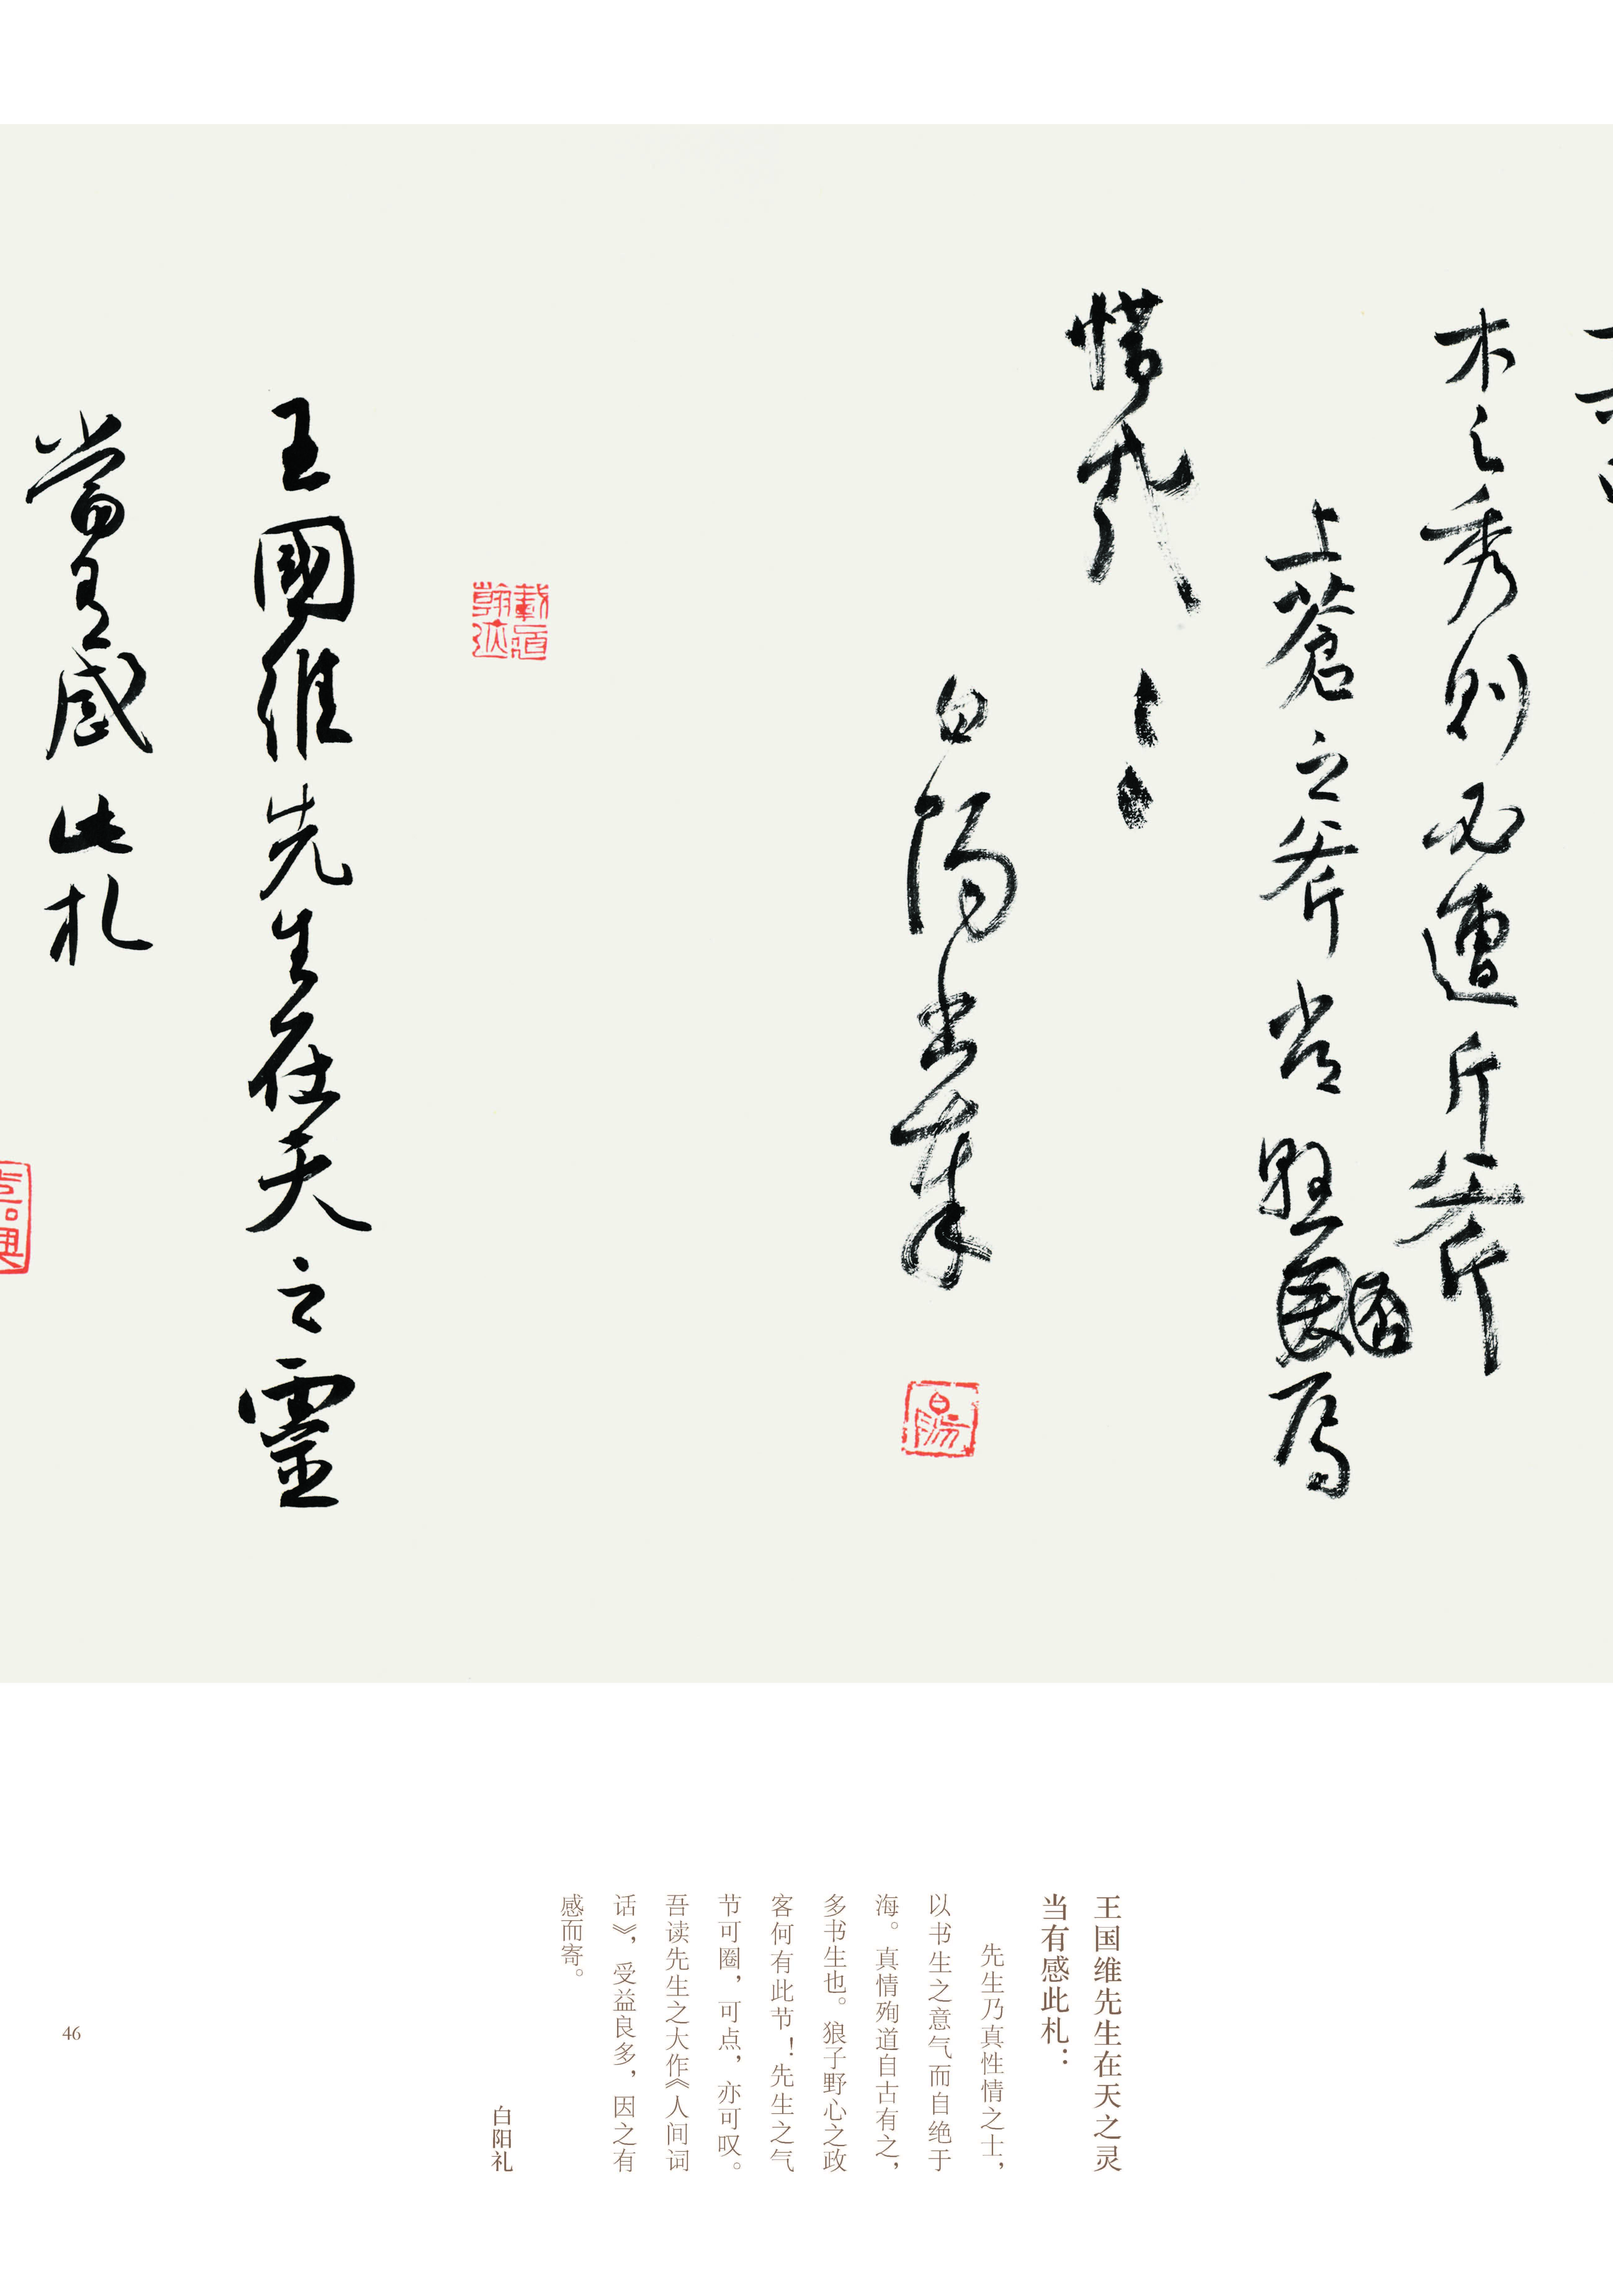 木之秀则必遭斤斧
上蒼之斧
惜哉
白陽
載道
翰逸
白陽
王國維先生在天之靈
當有感此札
王国维先生在天之灵
当有感此札：
先生乃真性情之士，
以书生之意气而自绝于
海。真情殉道自古有之，
多书生也。狼子野心之政
客何有此节！先生之气
节可圈，可点，亦可叹。
吾读先生之大作《人间词
话》，受益良多，因之有
感而寄。
白阳礼
46